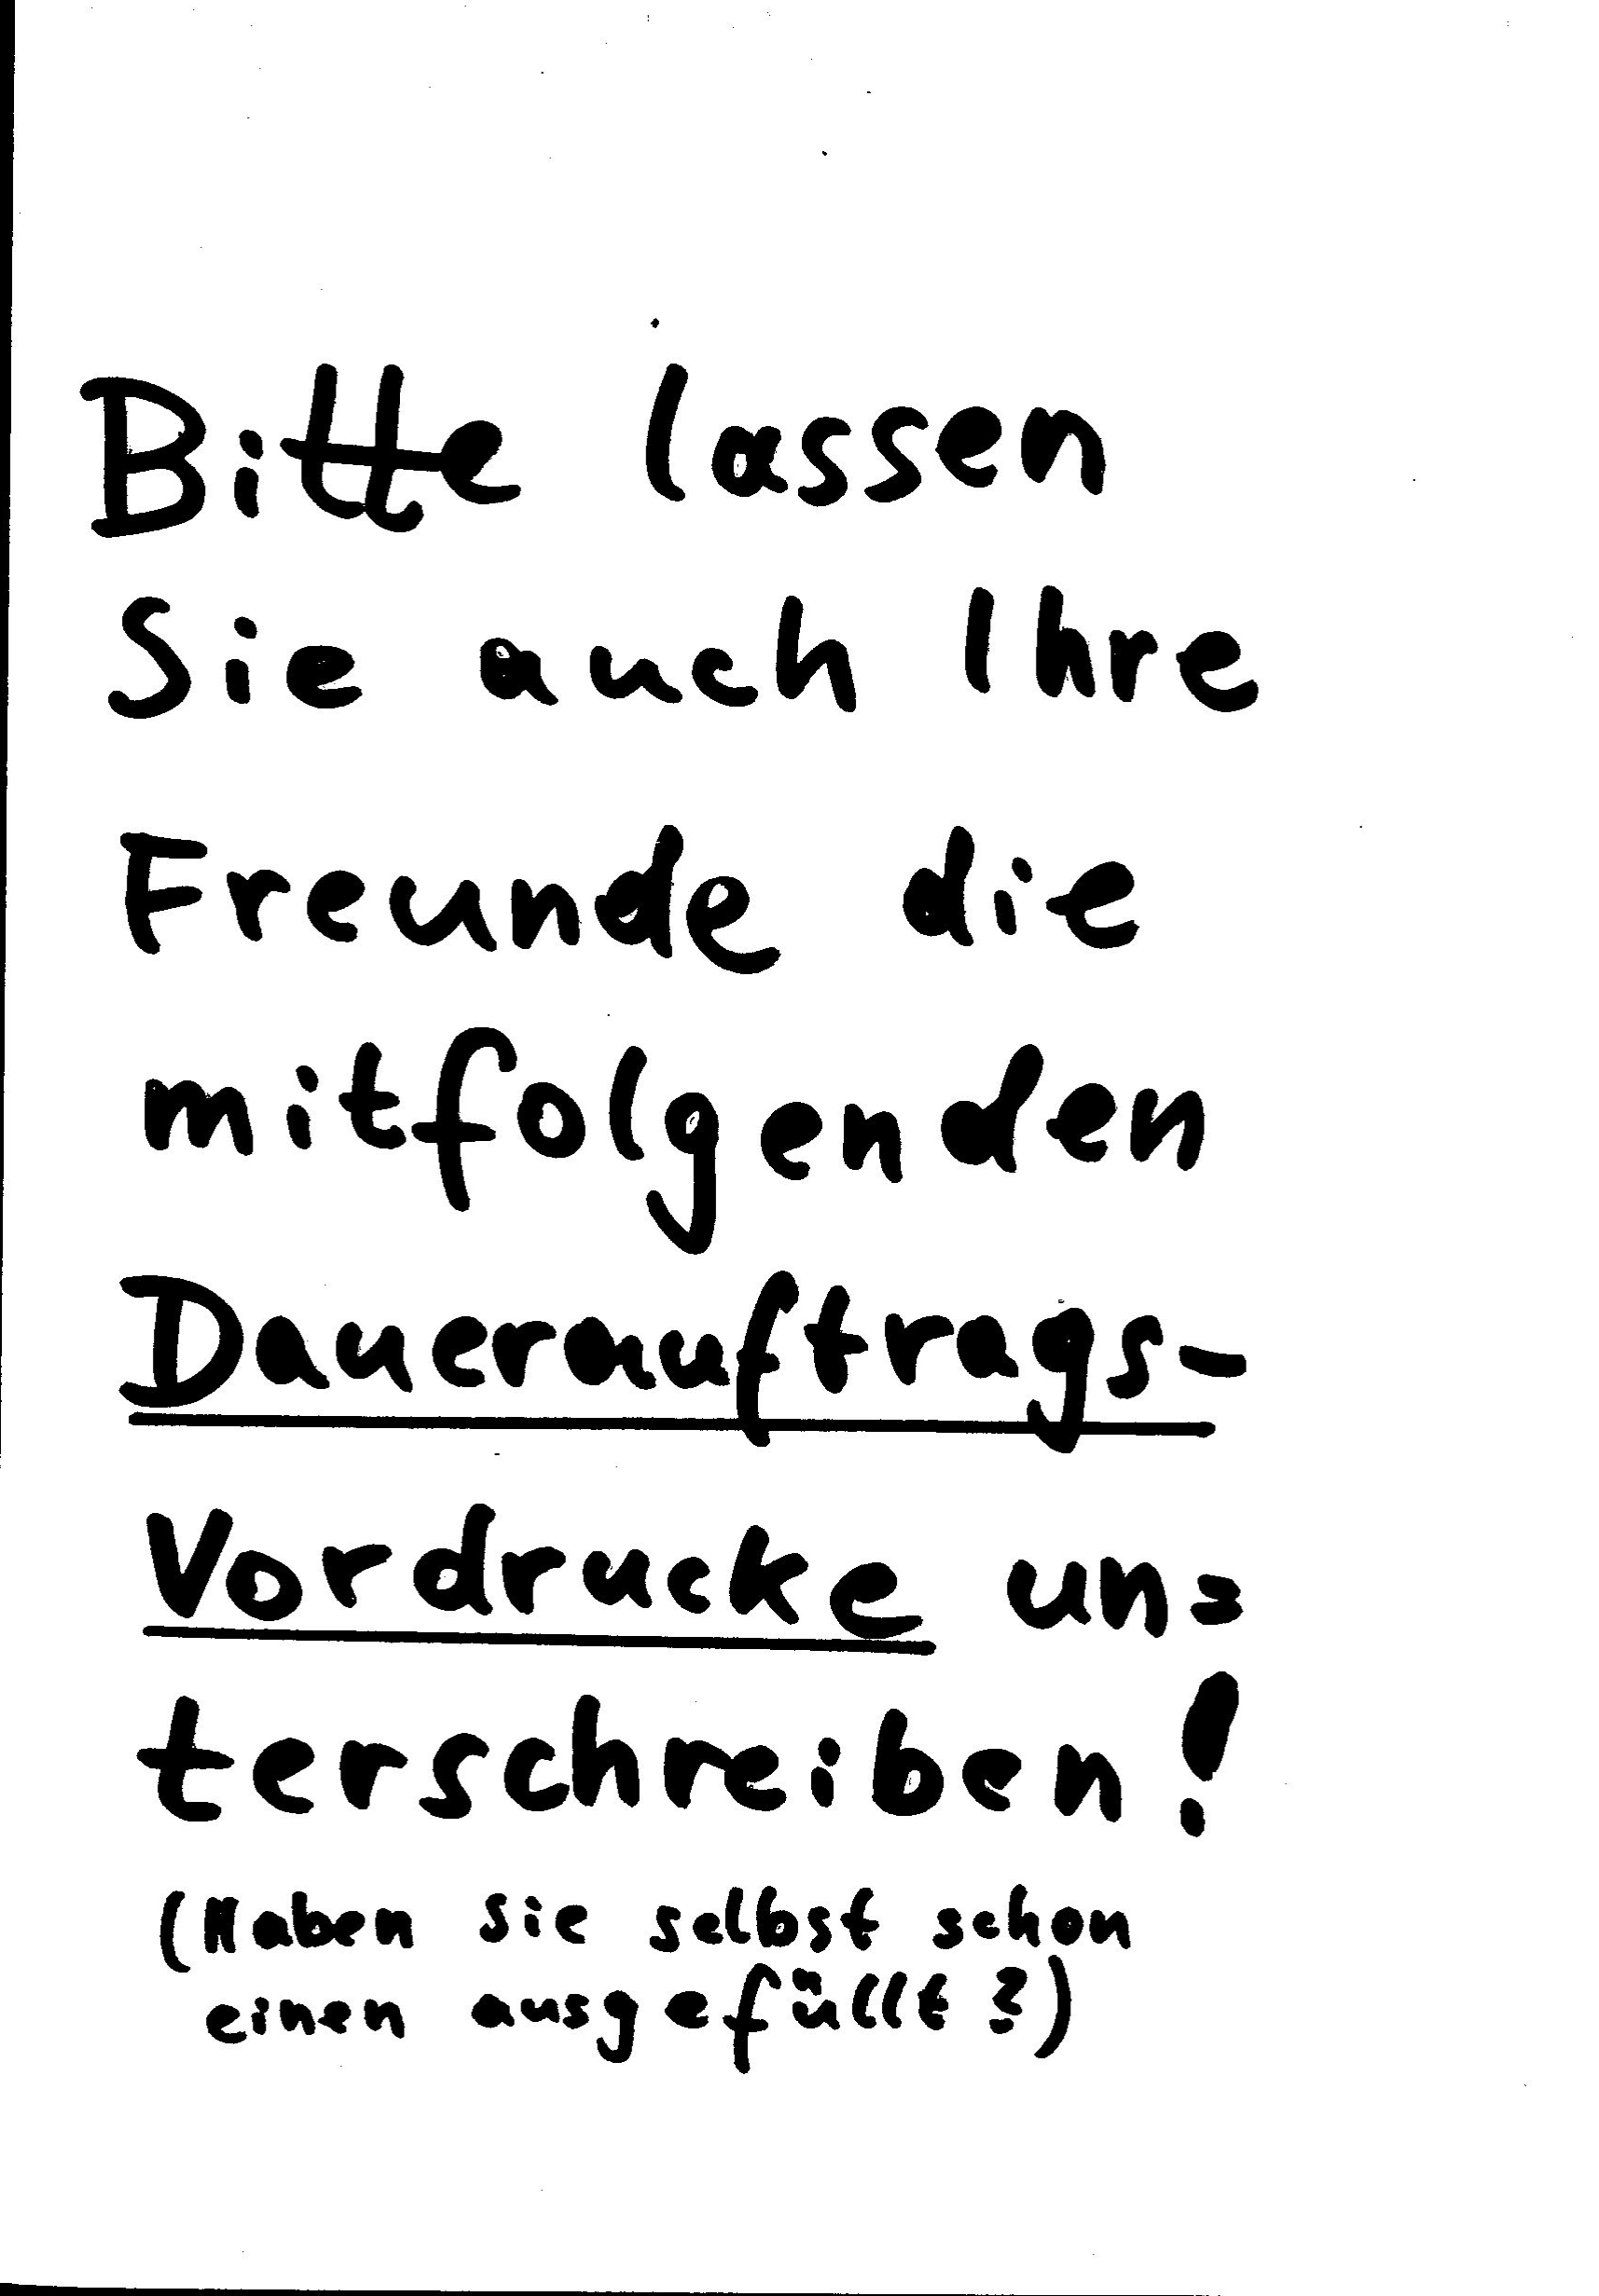 Bitte lassen
Sie auch Ihre
Freunde die
mitfolgenden
Dauerauftrags-
Vordrucke un=
terschreiben!
(Haben Sie selbst schon
einen ausgefüllt?)